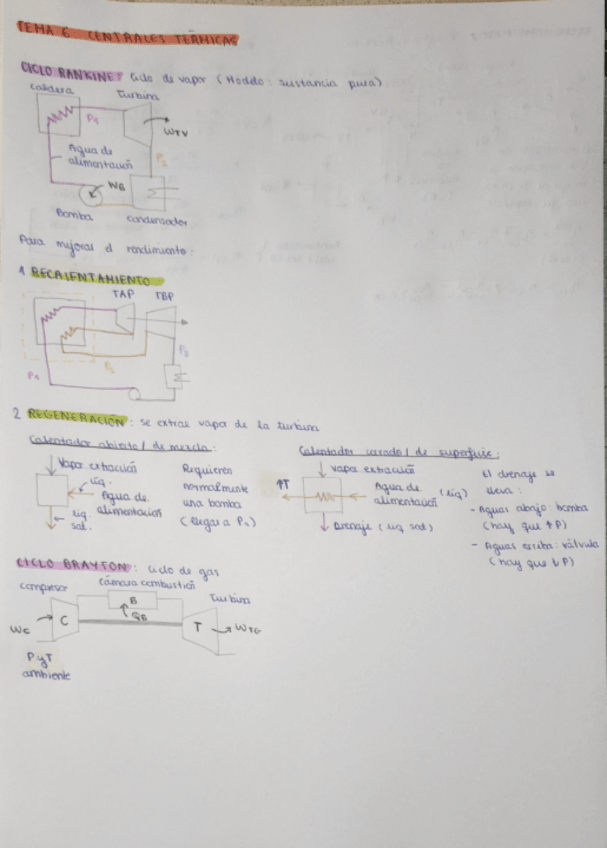 TEMA 6 CENTRALES TÉRMICAS
CICLO RANKINE: Ciclo de vapor (Modelo: sustancia pura)
Caldera
Turbina
P1
WTV
Agua de
alimentación
P2
WB
Bomba
condensador
Para mejorar el rendimiento:
1 RECALENTAMIENTO
TAP TBP
P1
P2
P3
2 REGENERACIÓN: se extrae vapor de la turbina
Calentador abierto / de mezcla:
Vapor extracción
líq.
Agua de
alimentación
líq.
sat.
Requieren
normalmente
una bomba
(llegar a P1)
Calentador cerrado / de superficie:
vapor extracción
↑T
Agua de (líq)
alimentación
Drenaje (líq sat)
El drenaje se
lleva:
- Aguas abajo: bomba
(hay que ↑P)
- Aguas arriba: válvula
(hay que ↓P)
CICLO BRAYTON: ciclo de gas
compresor
cámara combustión
Turbina
B
QB
WC
C
T
WTG
P y T
ambiente